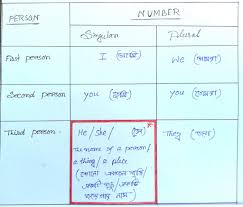 PERSON
NUMBER
Singular
Plural
First person
I (আমি)
We (আমরা)
Second person
you (তুমি)
you (তোমরা)
Third person
He / She / (সে)
The name of a person /
a thing / a place
They (তারা)